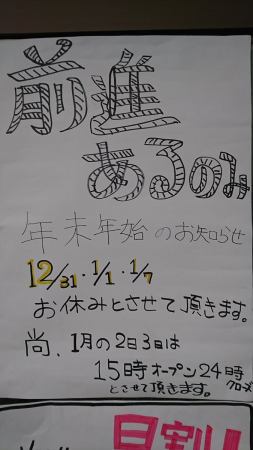 前進
あるのみ
年末年始のお知らせ
12/31・1/1・1/7
お休みとさせて頂きます。
尚、1月の2日3日は
15時オープン24時クローズ
とさせて頂きます。
日割り